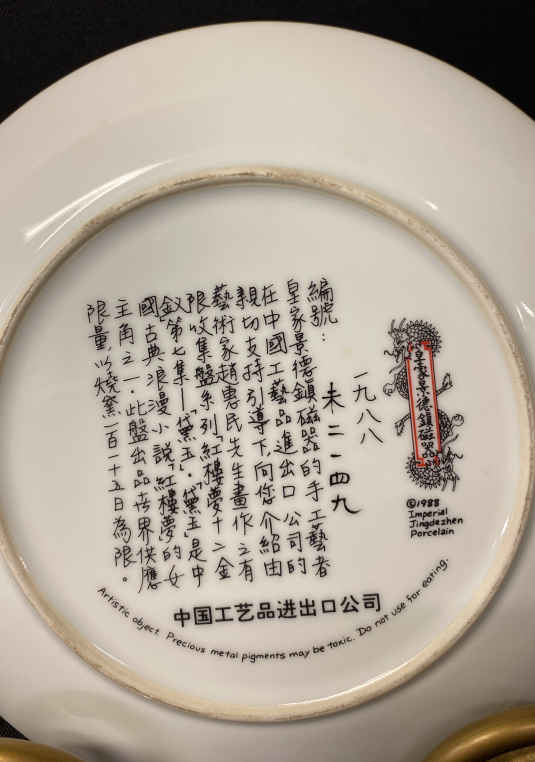 皇家景德鎮磁器品
©1988
Imperial
Jingdezhen
Porcelain
一九八八
編號：
未二一四九
皇家景德鎮磁器的手工藝者
在中國工藝品進出口公司的
親切支持引導下向您介紹由
藝術家趙惠民先生畫作之有
限收集盤系列「紅樓夢十二金
釵第七集—「黛玉」．「黛玉」是中
國古典浪漫小說「紅樓夢」的女
主角之一．此盤出品世界供應
限量以燒窯一百一十五日為限。
中国工艺品进出口公司
Artistic object. Precious metal pigments may be toxic. Do not use for eating.